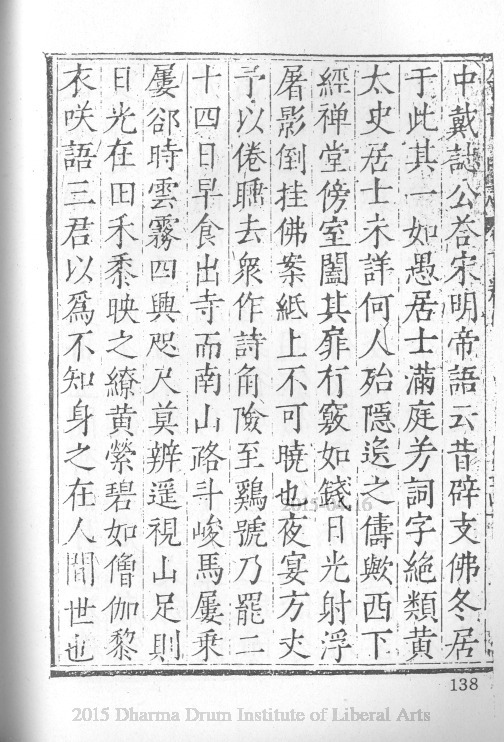 中戴誌公荅宋明帝語云昔辟支佛冬居
于此其一如愚居士滿庭芳詞字絶類黄
太史居士未詳何人殆隱逸之儔歟西下
經禅堂傍室闔其扉冇竅如錢日光射浮
屠影倒挂佛案紙上不可曉也夜宴方丈
予以倦聴去衆作詩角險至鷄號乃罷二
十四日早食出寺而南山路斗峻馬屢乗
屢郤時雲霧四興咫尺莫辨遥視山足則
日光在田禾黍映之繚黄縈碧如僧伽黎
衣咲語三君以爲不知身之在人間世也
138
2015-04-16
2015 Dharma Drum Institute of Liberal Arts